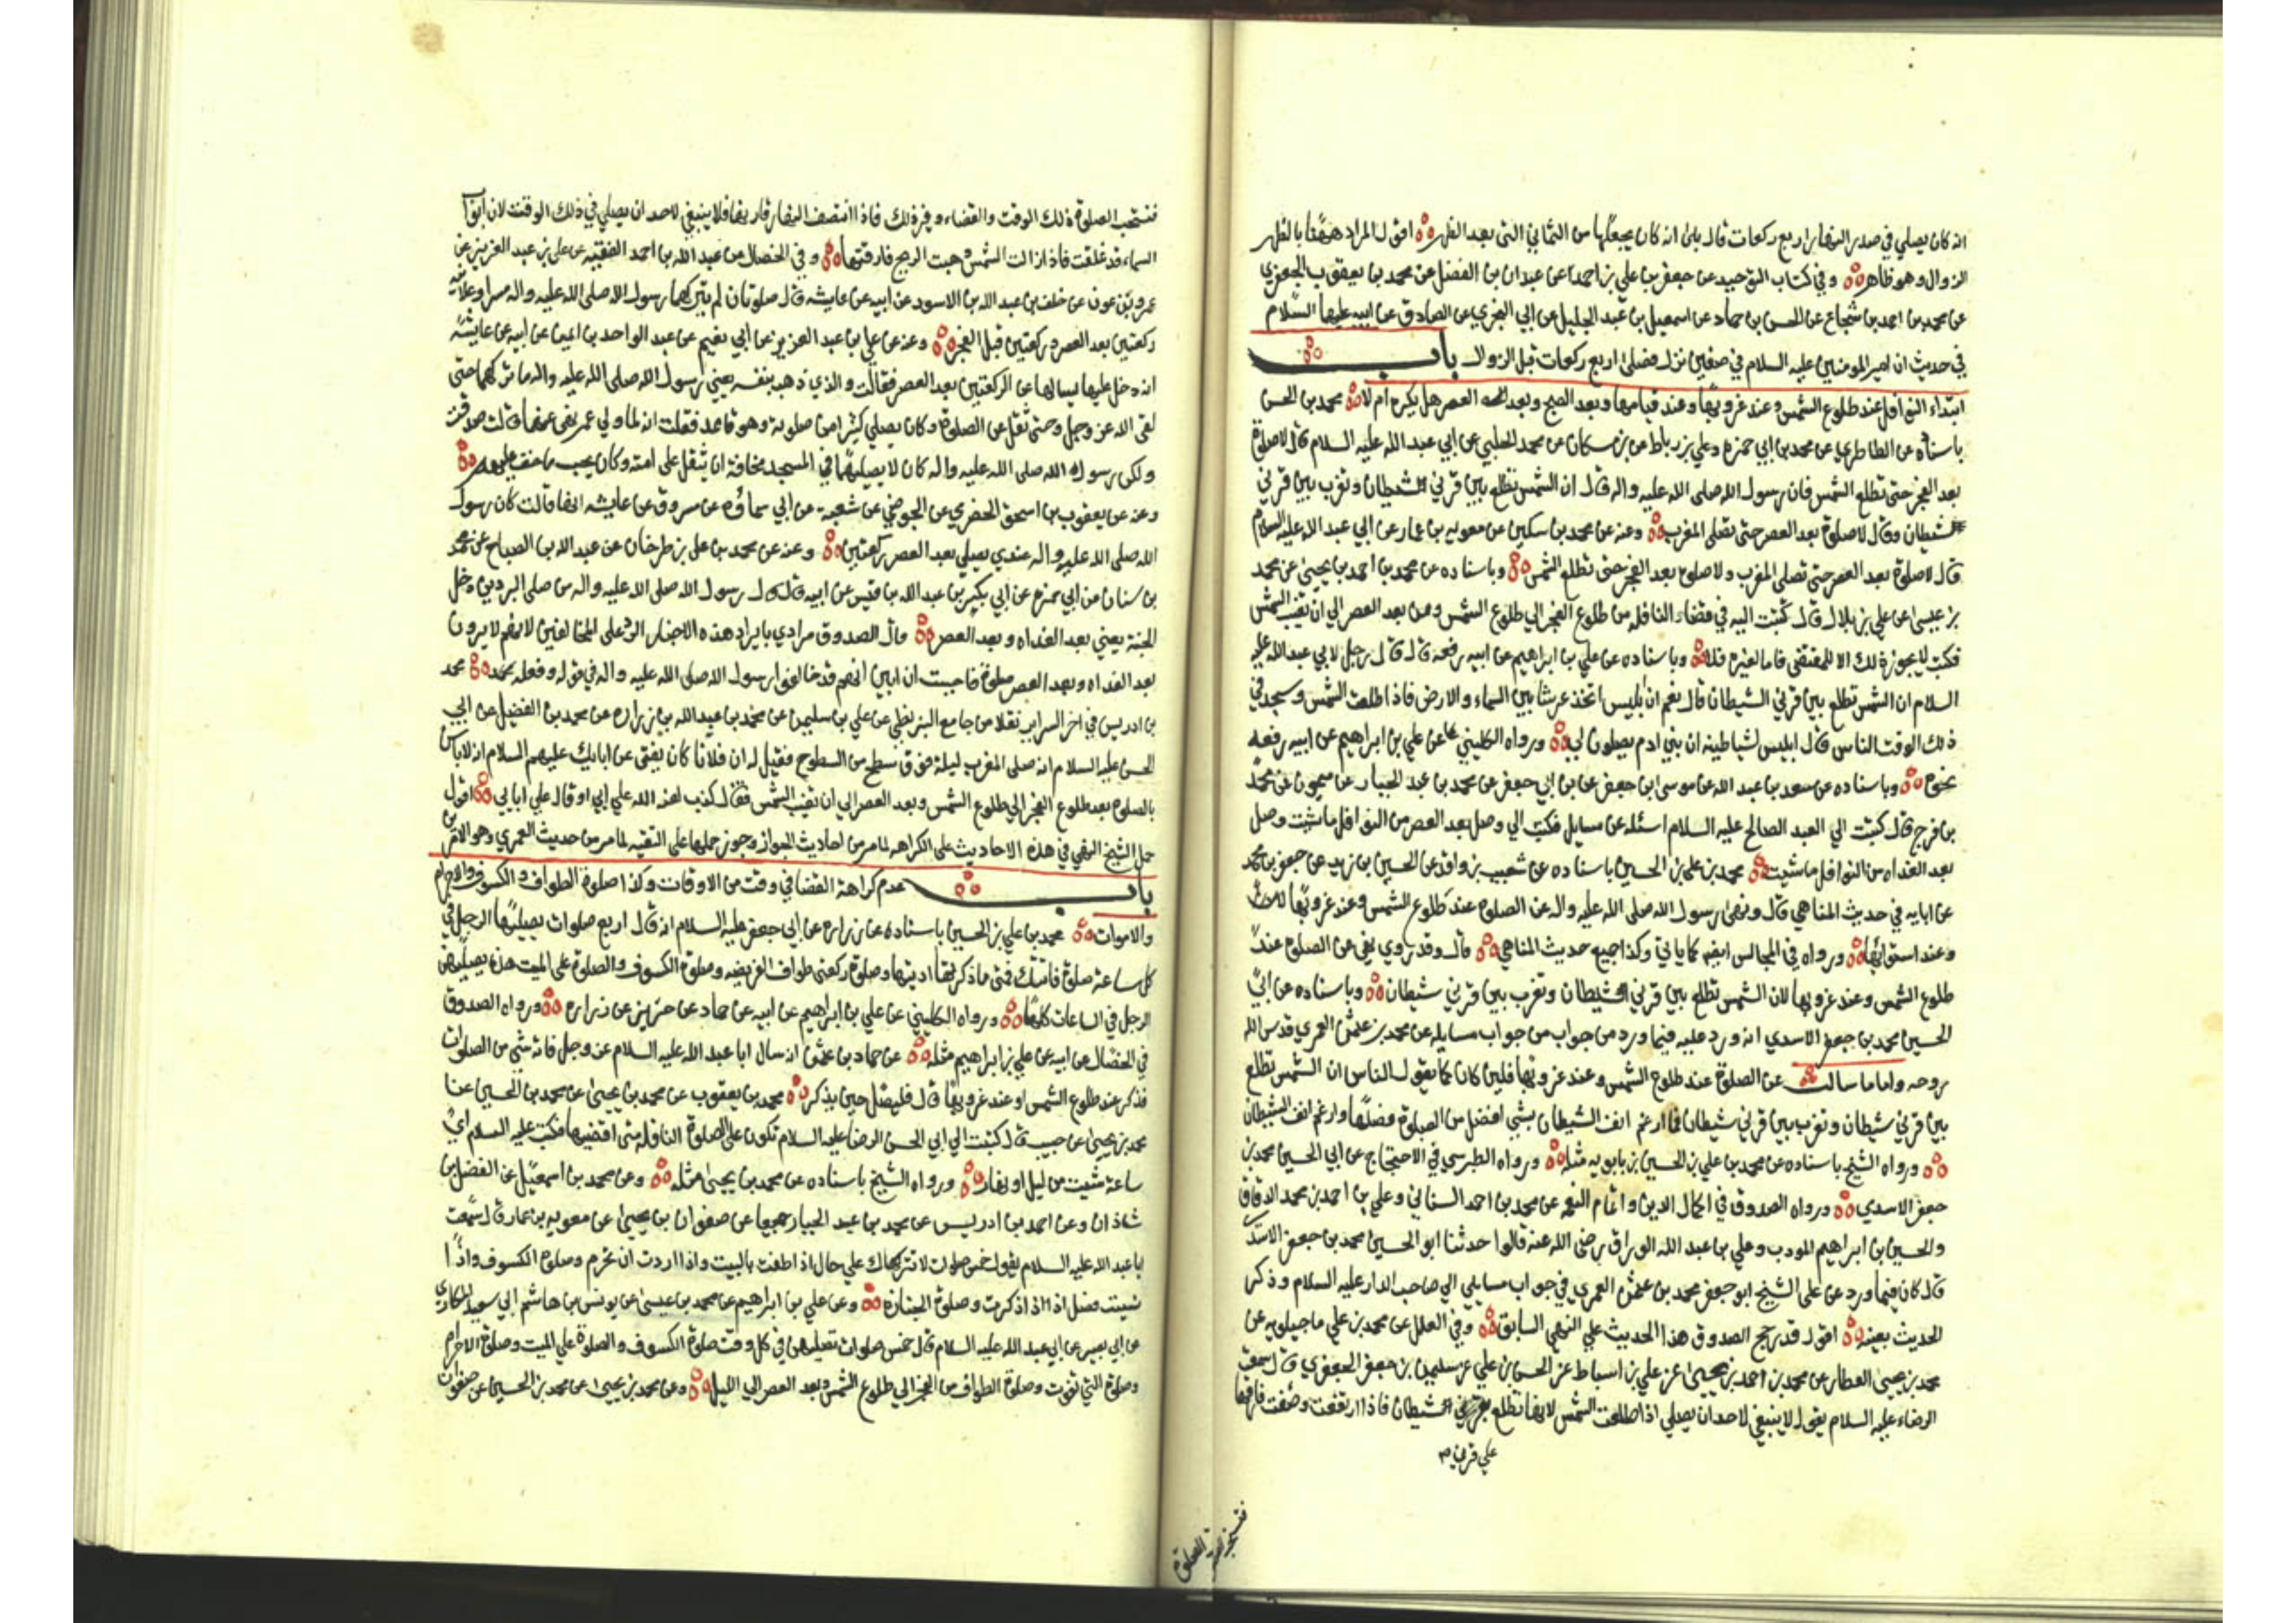 انه كان يصلي في صدر النهار اربع ركعات قال بلى انه كان يجعلها من الثماني التي بعد الظهر اقول المراد هنا بالظهر
الزوال وهو ظاهر وفي كتاب التوحيد عن جعفر بن علي بن احمد عن عبدان بن الفضل عن محمد بن يعقوب الجعفري
عن محمد بن احمد بن شجاع عن الحسن بن حماد عن اسمعيل بن عبد الجليل عن ابي البختري عن الصادق عن ابيه عليهما السلام
في حديث ان امير المومنين عليه السلام في صفين نزل فصلى اربع ركعات قبل الزوال باب
ابتداء النوافل عند طلوع الشمس وعند غروبها وعند قيامها وبعد الصبح وبعد العصر هل يكره ام لا محمد بن الحسن
باسناده عن الطاطري عن محمد بن ابي حمزه وعلي بن رباط عن بن مسكان عن محمد الحلبي عن ابي عبد الله عليه السلام قال لا صلوة
بعد الفجر حتى تطلع الشمس فان رسول الله صلى الله عليه واله قال ان الشمس تطلع بين قرني الشيطان وتغرب بين قرني
الشيطان وقال لا صلوة بعد العصر حتى تصلى المغرب وعنه عن محمد بن سكين عن معويه بن عمار عن ابي عبد الله عليه السلام
قال لا صلوة بعد العصر حتى تصلى المغرب ولا صلوة بعد الفجر حتى تطلع الشمس وباسناده عن محمد بن احمد بن يحيى عن محمد
بن عيسى عن علي بن بلال قال كتبت اليه في قضاء النافله من طلوع الفجر الى طلوع الشمس ومن بعد العصر الى ان تغيب الشمس
فكتب لا يجوز ذلك الا للمقتضي فاما لغيره فلا وباسناده عن علي بن ابراهيم عن ابيه رفعه قال قال رجل لابي عبد الله عليه
السلام ان الشمس تطلع بين قرني الشيطان قال نعم ان ابليس اتخذ عرشا بين السماء والارض فاذا طلعت الشمس وسجد في
ذلك الوقت الناس قال ابليس لشياطينه ان بني ادم يصلون لي ورواه الكليني عن علي بن ابراهيم عن ابيه رفعه
نحوه وباسناده عن سعد بن عبد الله عن موسى بن جعفر عن بن ابي جعفر عن محمد بن عبد الجبار عن ميمون عن محمد
بن فرج قال كتبت الى العبد الصالح عليه السلام اسئله عن مسايل فكتب الي وصل بعد العصر من النوافل ما شئت وصل
بعد الغداه من النوافل ما شئت محمد بن علي بن الحسين باسناده عن شعيب بن واقد عن الحسين بن زيد عن جعفر بن محمد
عن ابايه في حديث المناهي قال ونهى رسول الله صلى الله عليه واله عن الصلوه عند طلوع الشمس وعند غروبها
وعند استوائها ورواه في المجالس ايضا كما ياتي وكذا جميع حديث المناهي قال وقد روي نهي عن الصلوه عند
طلوع الشمس وعند غروبها لان الشمس تطلع بين قرني الشيطان وتغرب بين قرني شيطان وباسناده عن ابي
الحسين محمد بن جعفر الاسدي انه ورد عليه فيما ورد من جواب من جواب مسايله عن محمد بن عثمن العمري قدس الله
روحه واما ما سالت عن الصلوة عند طلوع الشمس وعند غروبها فلين كان كما يقول الناس ان الشمس تطلع
بين قرني شيطان وتغرب بين قرني شيطان فما ارغم انف الشيطان بشي افضل من الصلوة فصلها وارغم انف الشيطان
ورواه الشيخ باسناده عن محمد بن علي بن الحسين بن بابويه مثله ورواه الطبرسي في الاحتجاج عن ابي الحسين محمد بن
جعفر الاسدي ورواه الصدوق في اكمال الدين واتمام النعمه عن محمد بن احمد السناني وعلي بن احمد بن محمد الدقاق
والحسين بن ابراهيم المودب وعلي بن عبد الله الوراق رضي الله عنه قالوا حدثنا ابو الحسين محمد بن جعفر الاسدي
قال كان فيما ورد عن علي الشيخ ابو جعفر محمد بن عثمن العمري في جواب مسايلي الى صاحب الدار عليه السلام وذكر
الحديث بعينه اقول قد رجح الصدوق هذا الحديث على النهي السابق وفي العلل عن محمد بن علي ماجيلويه عن
محمد بن يحيى العطار عن محمد بن احمد بن يحيى عن علي بن اسباط عن الحسن بن علي عن سليمن بن جعفر الجعفري قال سمعت
الرضا عليه السلام يقول لا ينبغي لاحد ان يصلي اذا طلعت الشمس لانها تطلع بقرني الشيطان فاذا ارتفعت وضفت فارقها
علي قرني
فتستحب الصلوة ذلك الوقت والقضاء وغير ذلك فاذا انتصف النهار قارنها فلا ينبغي لاحد ان يصلي في ذلك الوقت لان ابواب
السماء قد غلقت فاذا زالت الشمس وهبت الريح فارقتها وفي الخصال عن عبد الله بن احمد الفقيه عن علي بن عبد العزيز عن
عمرو بن عون عن خلف بن عبد الله بن الاسود عن ابيه عن عايشه قال صلوتان لم يتركهما رسول الله صلى الله عليه واله سرا وعلانيه
ركعتين بعد العصر وركعتين قبل الفجر وعنه عن علي بن عبد العزيز عن ابي نعيم عن عبد الواحد بن ايمن عن ابيه عن عايشه
انه دخل عليها يسالها عن الركعتين بعد العصر فقالت والذي ذهب بنفسه يعني رسول الله صلى الله عليه واله ما تركهما حتى
لقى الله عز وجل وحتى ثقل عن الصلوة وكان يصلي كثيرا من صلوته وهو قاعد فقلت انه لما ولي عمر نهى عنهما قالت صدقت
ولكن رسول الله صلى الله عليه واله كان لا يصليهما في المسجد مخافة ان يثقل على امته وكان يحب ما خفف عليهم
وعنه عن يعقوب بن اسحق الحضري عن الحوضي عن شعبه عن ابي عن مسروق عن عايشه انها قالت كان رسول
الله صلى الله عليه واله عندي يصلي بعد العصر ركعتين وعنه عن محمد بن علي بن طرخان عن عبد الله بن الصباح عن محمد
بن سنان عن ابي حمزه عن ابي بكير بن عبد الله بن قيس عن ابيه قال قال رسول الله صلى الله عليه واله من صلى البردين دخل
الجنة يعني بعد الغداه وبعد العصر قال الصدوق مرادي بايراد هذه الاخبار الرد على المخالفين لانهم لا يرون
بعد الغداه وبعد العصر صلوة فاحببت ان ابين انهم قد خالفوا رسول الله صلى الله عليه واله في قوله وفعله محمد
بن ادريس في اخر السراير نقلا من جامع البزنطي عن علي بن سليمن عن محمد بن عبد الله بن زراره عن محمد بن الفضيل عن ابي
الحسن عليه السلام انه صلى المغرب ليلة فوق سطح من السطوح فقيل له ان فلانا كان يفتي عن ابايك عليهم السلام انه لا باس
بالصلوه بعد طلوع الفجر الى طلوع الشمس وبعد العصر الى ان تغيب الشمس فقال كذب لعنه الله على ابي او قال على ابايي اقول
حمل الشيخ النهي في هذه الاحاديث على الكراهه لما مر من احاديث الجواز وجوز حملها على التقيه لما مر من حديث العمري وهو الاقرب
باب عدم كراهة القضا في وقت من الاوقات وكذا صلوة الطواف والكسوف والاحرام
والاموات محمد بن علي بن الحسين باسناده عن زراره عن ابي جعفر عليه السلام انه قال اربع صلوات يصليها الرجل في
كل ساعة صلوة فاتتك فمتى ما ذكرتها اديتها وصلوة ركعتي طواف الفريضه وصلوة الكسوف والصلوة على الميت هذه يصليهن
الرجل في الساعات كلها ورواه الكليني عن علي بن ابراهيم عن ابيه عن حماد عن حريز عن زراره ورواه الصدوق
في الخصال عن ابيه عن علي بن ابراهيم مثله عن حماد بن عثمن انه سال ابا عبد الله عليه السلام عن رجل فاته شي من الصلوات
فذكر عند طلوع الشمس او عند غروبها قال فليصل حين يذكر محمد بن يعقوب عن محمد بن يحيى عن محمد بن الحسين عن
محمد بن يحيى عن حبيب قال كتبت الى ابي الحسن الرضا عليه السلام تكون علي الصلوة النافله متى اقضيها فكتب عليه السلام اي
ساعة شيت من ليل او نهار ورواه الشيخ باسناده عن محمد بن يحيى مثله وعن محمد بن اسمعيل عن الفضل بن
شاذان وعن احمد بن ادريس عن محمد بن عبد الجبار جميعا عن صفوان بن يحيى عن معويه بن عمار قال سمعت
ابا عبد الله عليه السلام يقول خمس صلوات لا تترك على حال اذا طفت بالبيت واذا اردت ان تحرم وصلوة الكسوف واذا
نسيت فصل اذا ذكرت وصلوة الجنازه وعن علي بن ابراهيم عن محمد بن عيسى عن يونس عن هاشم ابي سعيد المكاري
عن ابي بصير عن ابي عبد الله عليه السلام قال خمس صلوات تصليهن في كل وقت صلوة الكسوف والصلوة على الميت وصلوة الاحرام
وصلوة التي تفوت وصلوة الطواف من الفجر الى طلوع الشمس وبعد العصر الى الليل وعن محمد بن يحيى عن محمد بن الحسين عن صفوان